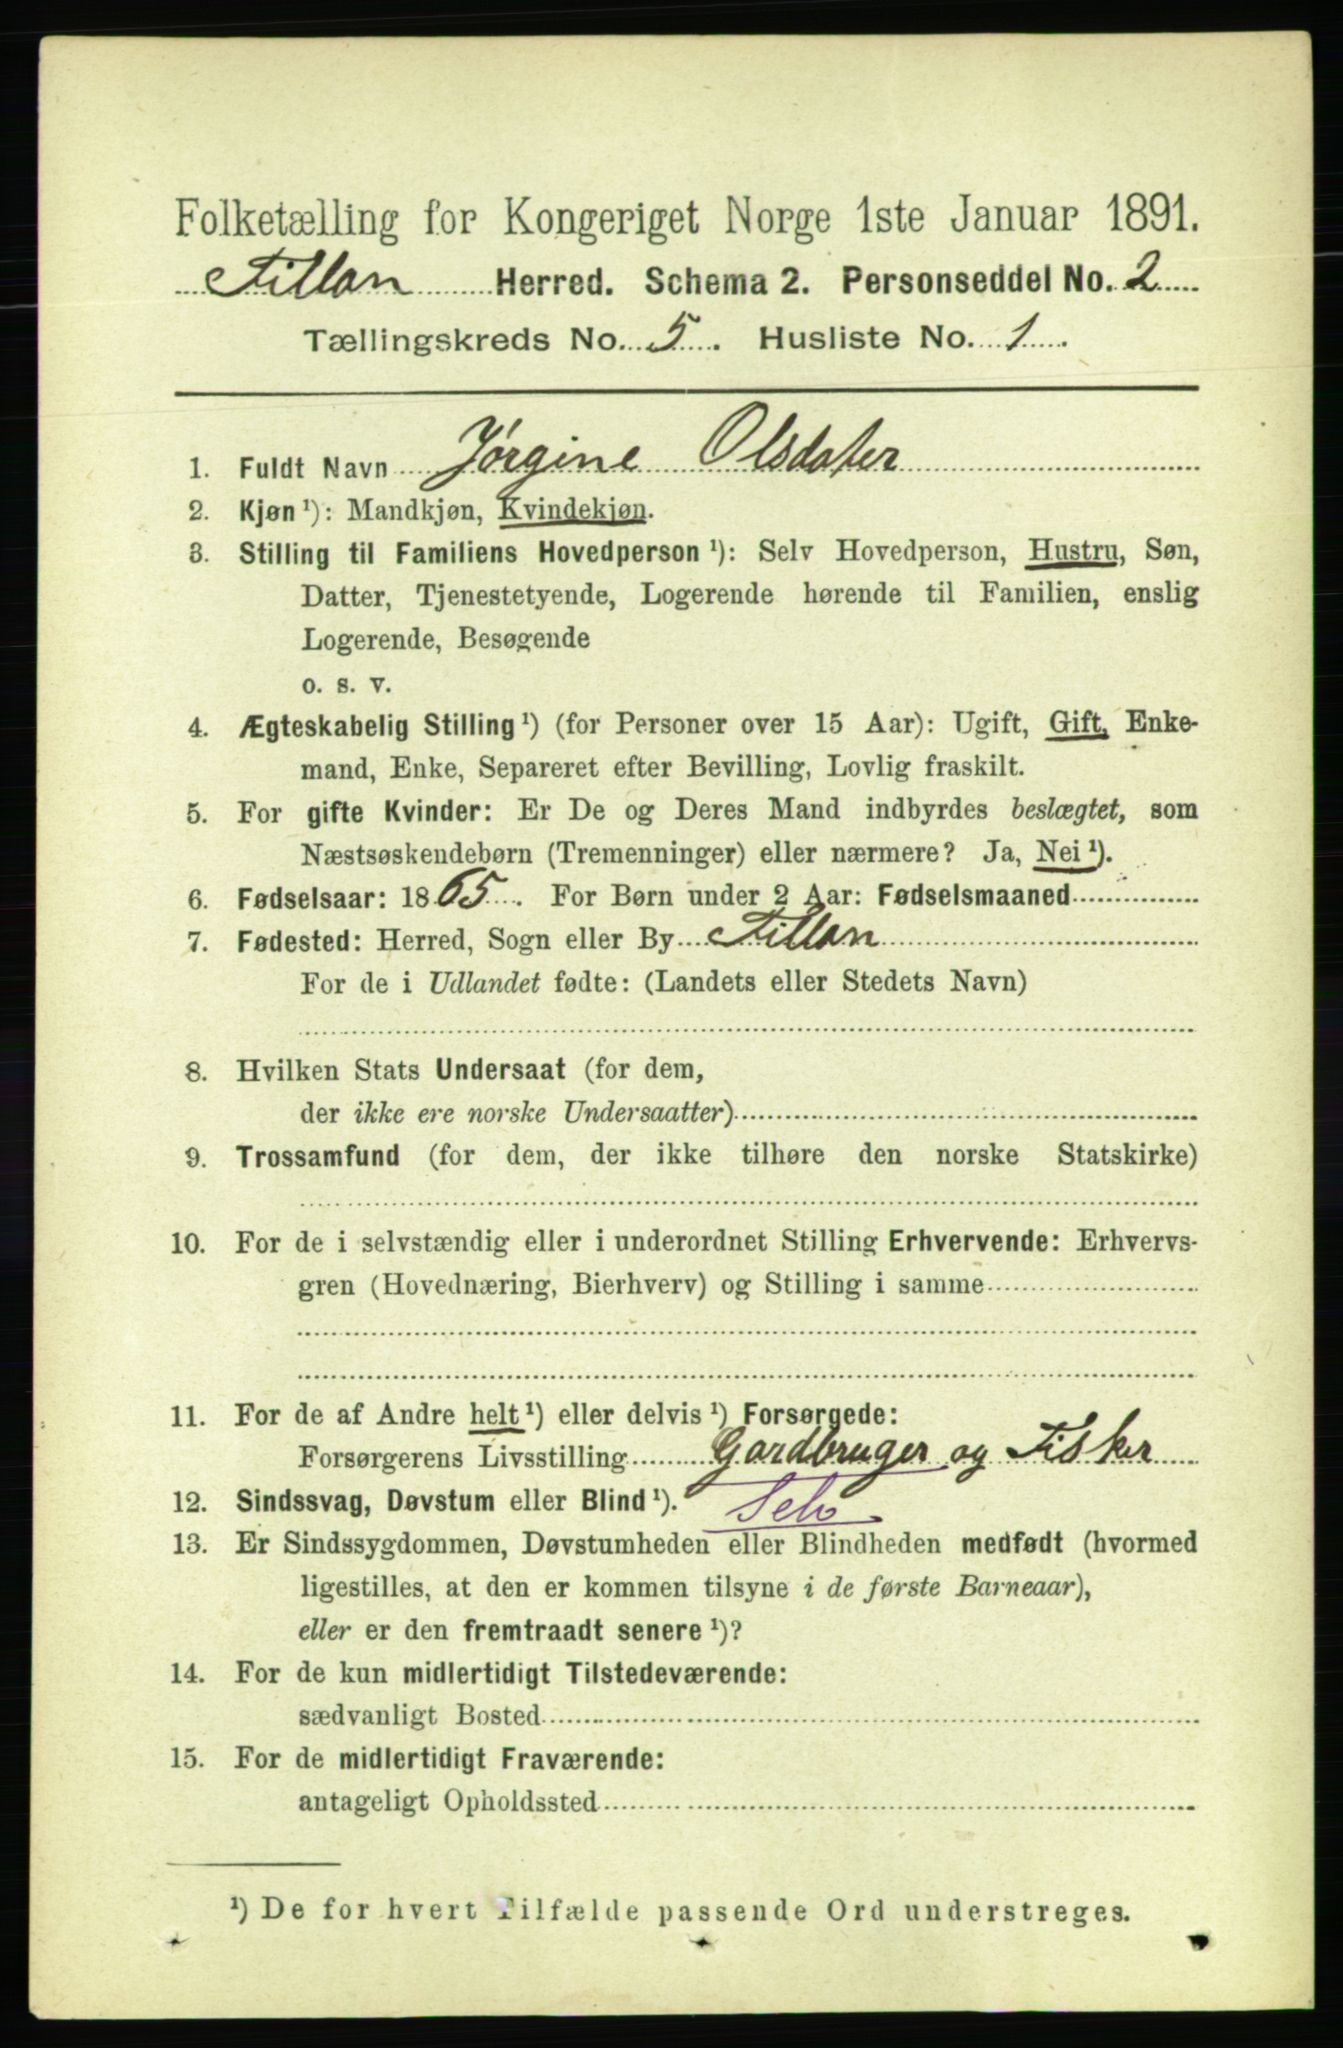 Folketælling for Kongeriget Norge 1ste Januar 1891.
Fillan Herred. Schema 2. Personseddel No. 2
Tællingskreds No. 5. Husliste No. 1.
1. Fuldt Navn Jørgine Olsdater
2. Kjøn¹): Mandkjøn, Kvindekjøn.
3. Stilling til Familiens Hovedperson¹): Selv Hovedperson, Hustru, Søn,
Datter, Tjenestetyende, Logerende hørende til Familien, enslig
Logerende, Besøgende
o. s. v.
4. Ægteskabelig Stilling¹) (for Personer over 15 Aar): Ugift, Gift, Enke-
mand, Enke, Separeret efter Bevilling, Lovlig fraskilt.
5. For gifte Kvinder: Er De og Deres Mand indbyrdes beslægtet, som
Næstsøskendebørn (Tremenninger) eller nærmere? Ja, Nei¹).
6. Fødselsaar: 1865. For Børn under 2 Aar: Fødselsmaaned
7. Fødested: Herred, Sogn eller By Fillan
For de i Udlandet fødte: (Landets eller Stedets Navn)
8. Hvilken Stats Undersaat (for dem,
der ikke ere norske Undersaatter)
9. Trossamfund (for dem, der ikke tilhøre den norske Statskirke)
10. For de i selvstændig eller i underordnet Stilling Erhvervende: Erhvervs-
gren (Hovednæring, Bierhverv) og Stilling i samme
11. For de af Andre helt¹) eller delvis¹) Forsørgede:
Forsørgerens Livsstilling Gardbruger og Fisker
12. Sindssvag, Døvstum eller Blind¹). Selv
13. Er Sindssygdommen, Døvstumheden eller Blindheden medfødt (hvormed
ligestilles, at den er kommen tilsyne i de første Barneaar),
eller er den fremtraadt senere¹)?
14. For de kun midlertidigt Tilstedeværende:
sædvanligt Bosted
15. For de midlertidigt Fraværende:
antageligt Opholdssted
¹) De for hvert Tilfælde passende Ord understreges.